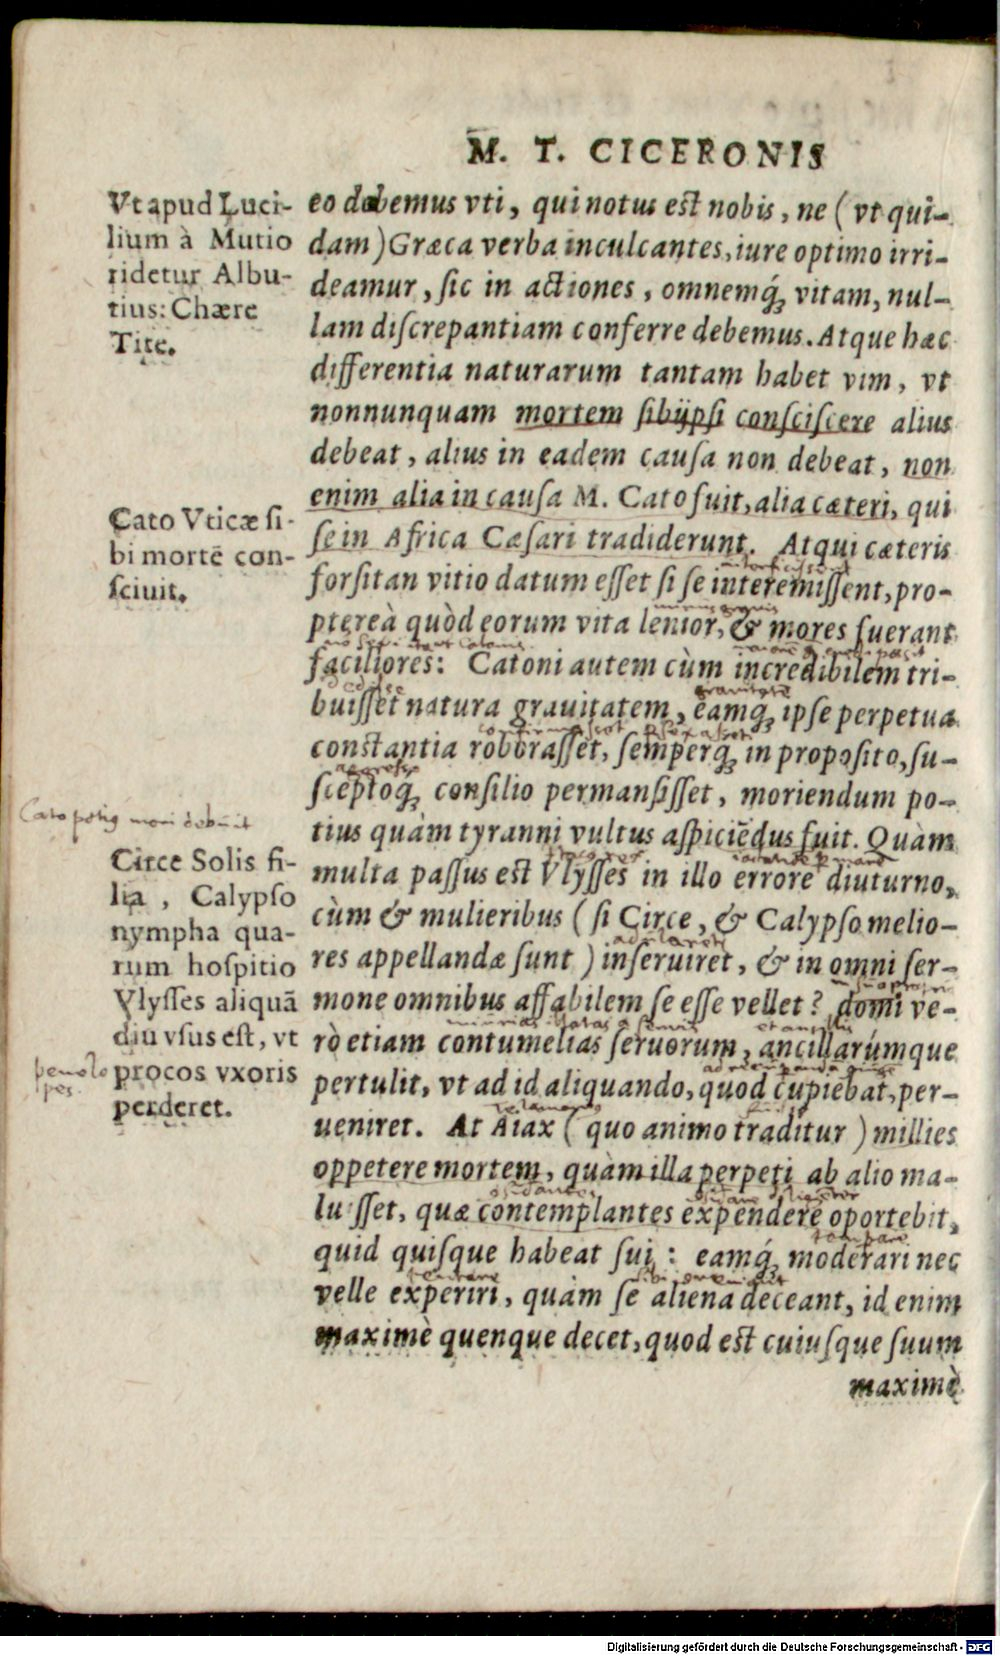 M. T. CICERONIS
Vt apud Luci-
lium à Mutio
ridetur Albu-
tius: Chære
Tite.
Cato Vticæ si-
bi mortē con-
sciuit.
Cato potiꝰ mori debuit
Circe Solis fi-
lia, Calypso
nympha qua-
rum hospitio
Vlysses aliquā
diu vsus est, vt
procos vxoris
perderet.
penelo
pes.
eo debemus vti, qui notus est nobis, ne (vt qui-
dam) Græca verba inculcantes, iure optimo irri-
deamur, sic in actiones, omnemq́; vitam, nul-
lam discrepantiam conferre debemus. Atque hæc
differentia naturarum tantam habet vim, vt
nonnunquam mortem sibijpsi consciscere alius
debeat, alius in eadem causa non debeat, non
enim alia in causa M. Cato fuit, alia cæteri, qui
se in Africa Cæsari tradiderunt. Atqui cæteris
forsitan vitio datum esset si se interemissent, pro-
ptereà quòd eorum vita lenior, & mores fuerant
faciliores: Catoni autem cùm incredibilem tri-
buisset natura grauitatem, eamq; ipse perpetua
constantia roborasset, semperq; in proposito, su-
sceptoq; consilio permansisset, moriendum po-
tius quàm tyranni vultus aspiciēdus fuit. Quàm
multa passus est Vlysses in illo errore diuturno,
cùm & mulieribus (si Circe, & Calypso melio-
res appellandæ sunt) inseruiret, & in omni ser-
mone omnibus affabilem se esse vellet? domi ve-
rò etiam contumelias seruorum, ancillarúmque
pertulit, vt ad id aliquando, quod cupiebat, per-
ueniret. At Aiax (quo animo traditur) millies
oppetere mortem, quàm illa perpeti ab alio ma-
luisset, quæ contemplantes expendere oportebit,
quid quisque habeat sui: eamq́; moderari nec
velle experiri, quàm se aliena deceant, id enim
maximè quenque decet, quod est cuiusque suum
maximè
Digitalisierung gefördert durch die Deutsche Forschungsgemeinschaft - DFG